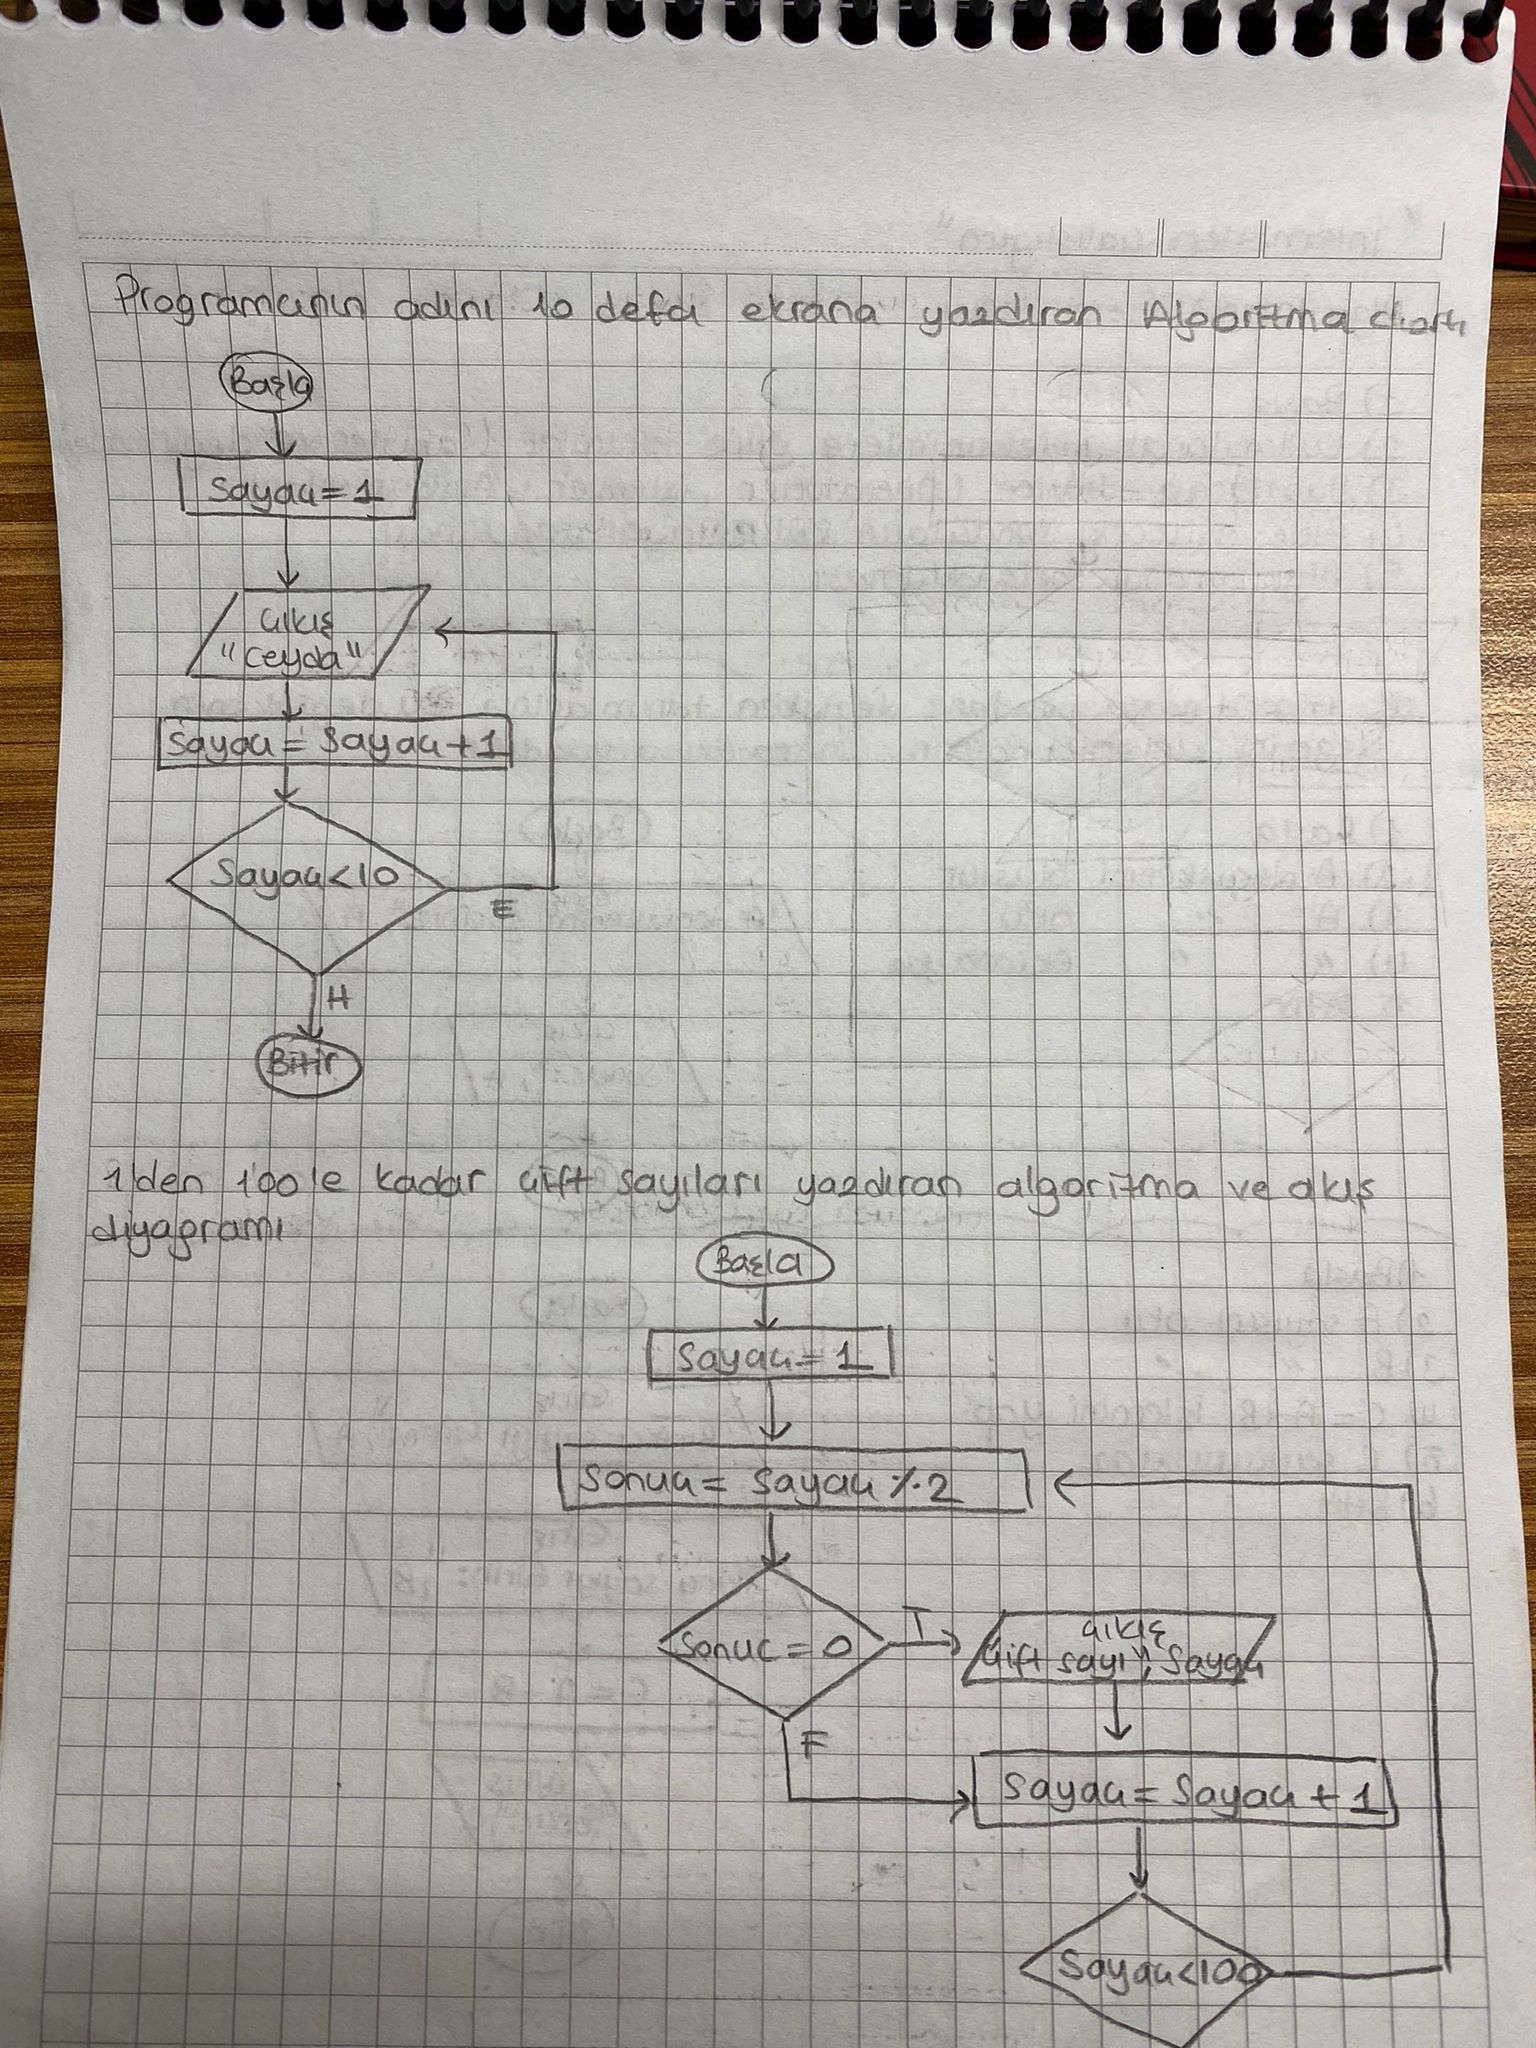 Programcının adını 10 defa ekrana yazdıran Algoritma chartı
Başla
Sayaç=1
Çıkış
"Ceyda"
Sayaç = Sayaç+1
Sayaç<10
E
H
Bitir
1'den 100'e kadar çift sayıları yazdıran algoritma ve akış
diyagramı
Başla
Sayaç=1
Sonuç = Sayaç %2
Sonuc = 0
T
Çıkış
Çift sayı", Sayaç
F
Sayaç = Sayaç + 1
Sayaç<100